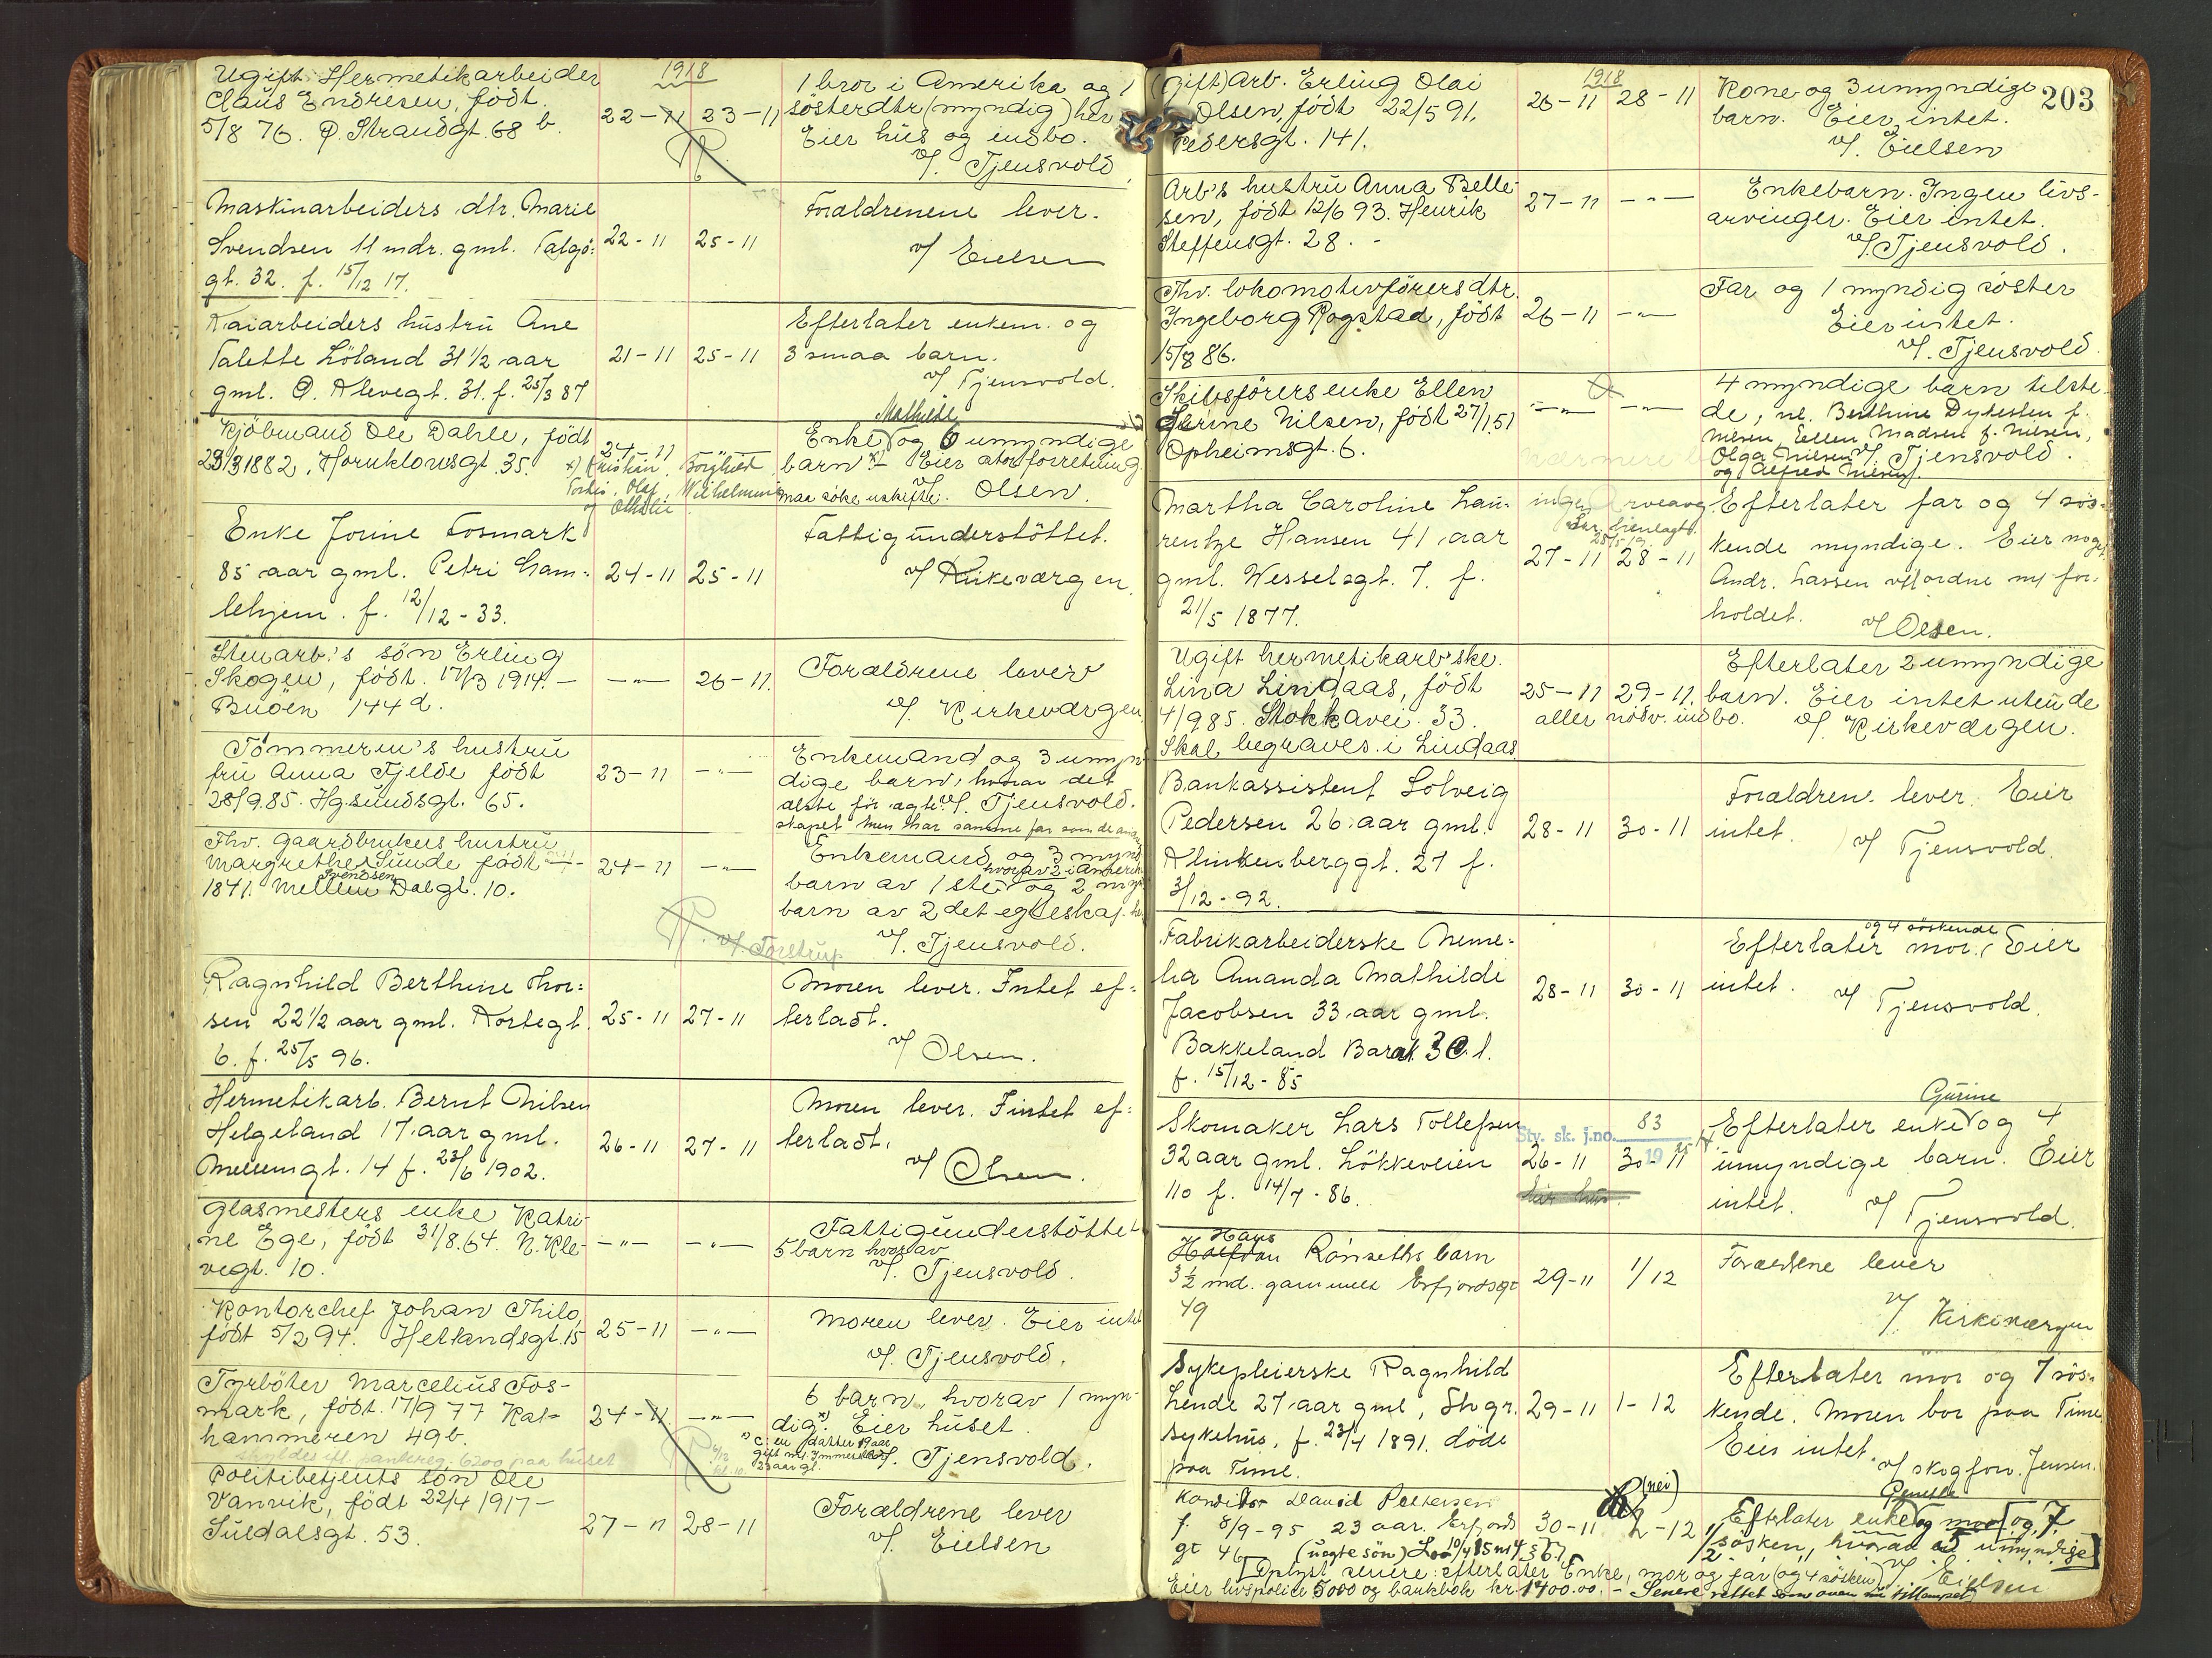 1918
Ugift Hermetikarbeider
Claus Endresen, född
5/8 76. Ø. Strandgt. 68 b.
22-11 23-11
1 bror i Amerika og 1
søsterdtr (myndig) her
Eier hus og indbo.
v/. Tjensvold
Maskinarbeiders dtr. Marie
Svendsen 11 mdr. gml. Talgö:
gt. 32. f. 15/12 17.
22-11 25-11
Forældrenene lever.
v/ Eielsen
Kaiarbeiders hustru Ane
Talette Löland 31 1/2 aar
gml. Ø. Klevegt. 31. f. 25/3 87
21-11 25-11
Efterlater enkem. og
3 smaa barn.
v/ Tjensvold.
Kjöbmand Ole Dahle, födt
23/3 1882. Hornklovsgt. 35.
24-11
x) Kristian, Borghild
Olaf, Wilhelmine
Mathilde
Enke og 6 umyndige
barn x) - Eier stor forretning
maa söke uskifte. v/ Olsen.
Enke Jorine Fosmark
85 aar gml. Petri Gam:
lehjem. f. 12/12-33.
24-11 25-11
Fattigunderstöttet.
v/ Kirkeværgen.
Stenarb.'s sön Erling
Skogen, födt. 17/3 1914. -
Buöen 144 d.
-"- 26-11.
Forældrene lever
v/. Kirkeværgen
Tömmerm's hustru
fru Anna Fjelde födt
28/9.85. Hgsundsgt. 65.
23-11 -"-
Enkemand og 3 umyn
dige barn, hvorav det
ælste för ægte- v/. Tjensvold.
skapet men har samme far som de andre
Fhv. gaardbrukers hustru
Margrethe Sunde födt
Svendsen
1841. Mellem Dalgt. 10.
24-11 -"-
Enkemand og 3 mynd
hvorav 2 i Amerika
barn av 1ste og 2 myn
barn av 2det egteskap.
v/. Tjensvold.
v/. Torstrup
Ragnhild Berthine Thor:
sen 22 1/2 aar gml. Kortegt.
6. f. 25/5 96.
25-11 27-11
Moren lever. Intet ef:
terladt.
v/ Olsen.
Hermetikarb. Bernt Nilsen
Helgeland 17 aar gml.
Mellemgt. 14 f. 23/6 1902.
26-11 27-11
Moren lever. Intet ef:
terladt.
v/ Olsen.
Glasmesters enke Katri-
ne Ege, födt 31/8.64. N. Kle-
vegt. 10.
-"- -"-
Fattigunderstöttet
5 barn hvorav
v/. Tjensvold.
Kontorchef Johan Thilo,
födt 5/2 94. Hetlandsgt. 15
25-11 -"-
Moren lever. Eier intet
v/. Tjensvold.
Fyrböter Marcelius Fos-
mark, födt. 17/9 77 Kat-
hammeren 49b.
24-11 -"-
6 barn, hvorav 1 myn-
dig x). Eier huset.
x) c: en datter 19 aar
gift m/. Immerslund
23 aar gl.
v/. Tjensvold.
Politibetjents sön Ole
Vanvik, födt 22/4 1917 -
Suldalsgt. 53.
27-11 28-11
Forældrene lever
v/. Eielsen
203
1918
(Gift) Arb. Erling Olai
Olsen, födt 22/5 91.
Pedersgt. 141.
26-11 28-11
Kone og 3 umyndige
barn. Eier intet.
v/. Eielsen
Arb's hustru Anna Belle-
sen, födt 12/6 93. Henrik
Steffensgt. 28. -
27-11 -"-
Enkebarn. Ingen livs-
arvinger. Eier intet.
v/. Tjensvold.
Fhv. lokomotivförers dtr.
Ingeborg Rogstad, födt
15/8 86.
26-11 -"-
Far og 1 myndig söster
Eier intet.
v/. Tjensvold.
Skibsförers enke Ellen
Serine Nilsen, födt 27/1.51
Opheimsgt. 6.
-"- -"-
4 myndige barn telste-
de, nl. Berthine Dybesten f.
Nilsen, Ellen Madsen f. Nilsen,
Olga Nilsen v/. Tjensvold.
og Alfred Nilsen.
Martha Caroline Lau-
rentze Hansen 41 aar
gml. Wesselsgt. 7. f.
21/5 1877.
ingen Arveavg
27-11 28-11
Efterlater far og 4 sös-
kende myndige. Eier noget
Andr. Lassen vil ordne m/ for:
holdet. v/ Olsen.
Ugift hermetikarb'ske.
Lina Lindaas, födt
4/9 85. Stokkavei. 33.
Skal begraves i Lindaas.
25-11 29-11.
Efterlater 2 umyndige
barn. Eier intet uten de
aller nödv. indbo. v/. Kirkeværgen.
Bankassistent Solveig
Pedersen 26 aar gml.
Klinkenberggt. 27 f.
3/12-92.
28-11 30-11
Forældren. lever. Eier
intet. v/ Tjensvold.
Fabrikarbeiderske Neme:
lia Amanda Mathilde
Jacobsen 33 aar gml.
Bakkeland Barak 3 C. 1.
f. 15/12-85
28-11 30-11
og 4 söskende
Efterlater mor. Eier
intet. v/ Tjensvold.
Skomaker Lars Tollefsen
32 aar gml. Lökkeveien
110 f. 14/7-86.
Stv. sk. j.no. 83
19
26-11 30-11
Gurine
Efterlater enke og 4
umyndige barn. Eier
intet. v/ Tjensvold.
Hans
Halfdan Rönseths barn
3 1/2 md. gammelt Erfjordsgt
49
29-11 1/12
Forældrene lever
v/. Kirkeværgen
Sykepleierske Ragnhild
Lende 27 aar gml, Stvgr.
sykehus, f. 23/4 1891. döde
paa Time.
29-11 1-12
Efterlater mor og 7 sös-
kende. Moren bor paa Time
Eier intet. v/ skogforv. Jensen.
Konditor David Pettersen
f. 8/9-95 23 aar. Erfjords
gt 46 (uegte sön)
30-11 2-12
(nei)
Efterlater enke og mor og 7
sösken, hvorav umyndige
Oplyst senere: efterlater Enke, mor og far (og 4 sösken) v/. Eielsen
Eier livspolice 5000 og bankbok kr. 1400.00. - Senere rettet som oven